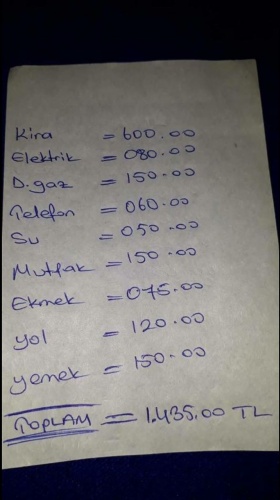 Kira = 600.00
Elektrik = 080.00
D.gaz = 150.00
Telefon = 060.00
Su = 050.00
Mutfak = 150.00
Ekmek = 075.00
yol = 120.00
yemek = 150.00
TOPLAM = 1.435.00 TL